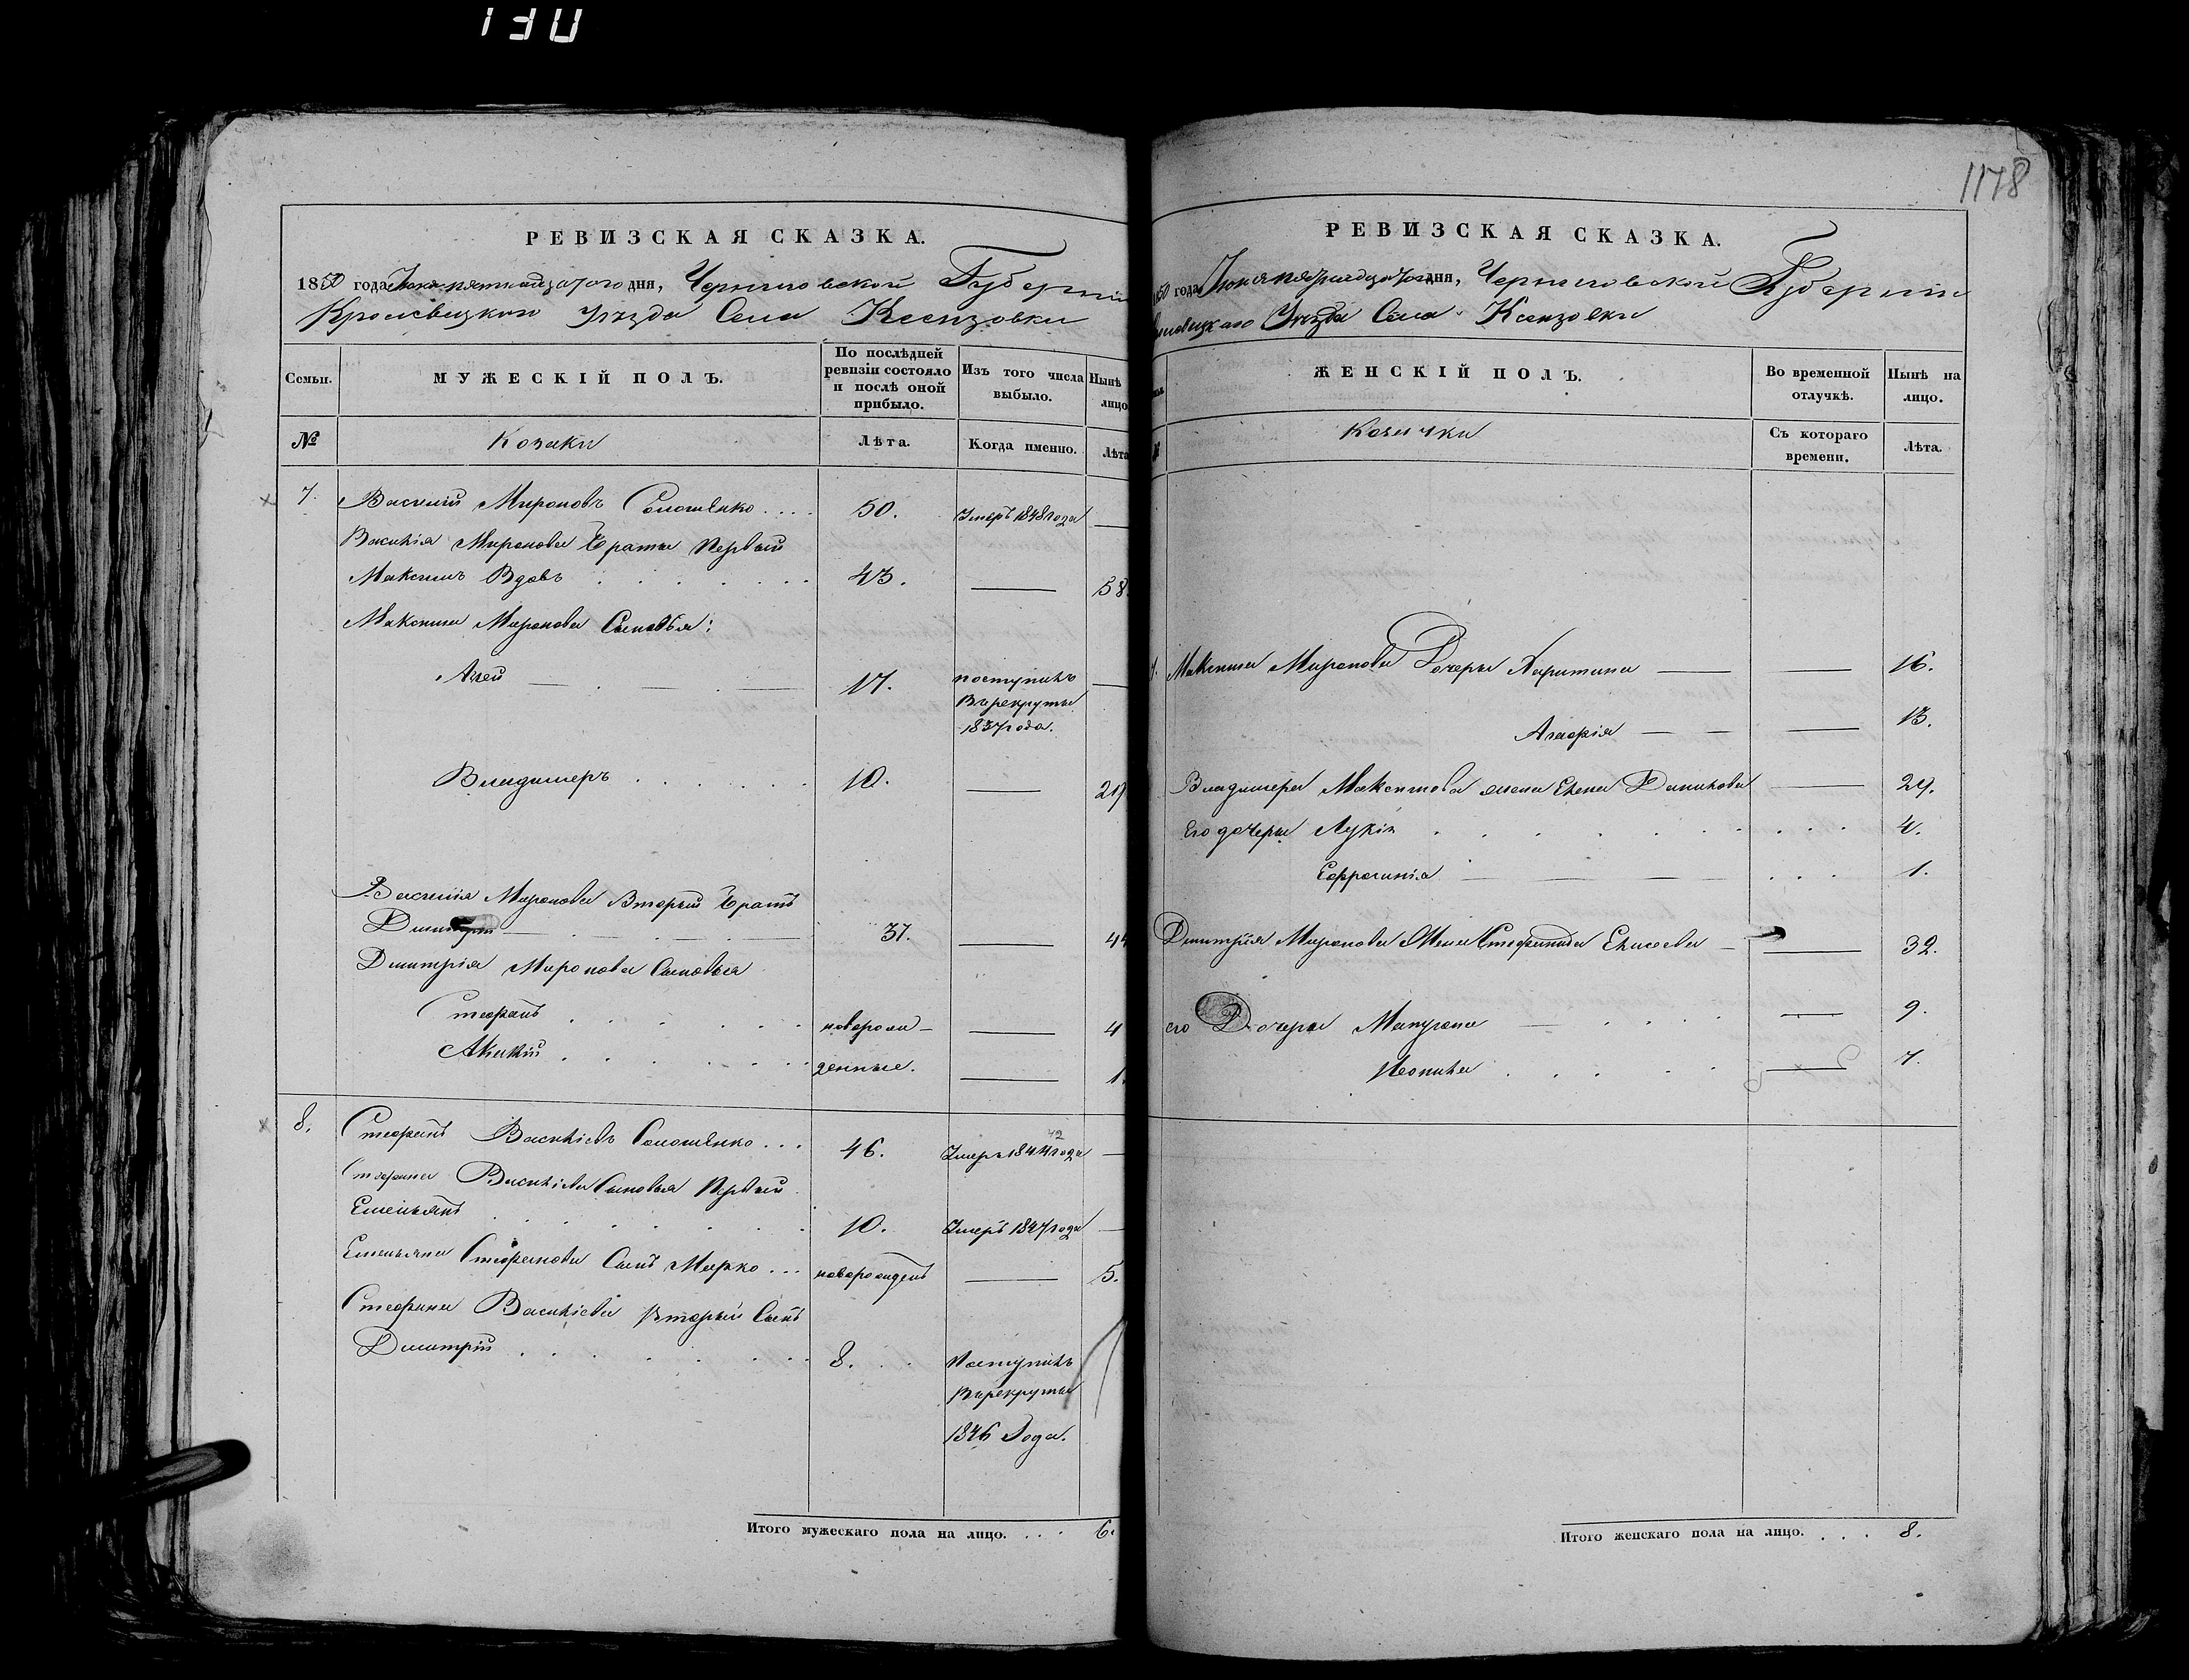 130
1178
РЕВИЗСКАЯ СКАЗКА.
1850 года Июня пятнадцатого дня, Черниговской Губерніи
Кролевецкого Уѣзда Села Ксензовки
Семьи.
МУЖЕСКІЙ ПОЛЪ.
По послѣдней ревизіи состояло и послѣ оной прибыло.
Изъ того числа выбыло.
Нынѣ лицо
№
Козаки
Лѣта.
Когда именно.
Лѣта
7. Василий Мироновъ Солошенко 50. Умеръ 1848 года
Василія Миронова Братья Первый
Максимъ Вдовъ 43. 58.
Максима Миронова Сыновья:
17. поступилъ
Врекруты
1837 года.
Владимеръ 10. 29
Василия Миронова Вторый Братъ
Дмитрій 37. 44
Дмитрія Миронова Сыновья
Стефанъ новорож- 4
Акакій денные. 1.
8. Стефанъ Василіевъ Солошенко 46. Умеръ 1844 года
42
Стефана Василіева Сыновья Первый
Емельянъ 10. Умеръ 1847 года
Емельяна Стефанова Сынъ Марко новорожденъ 5.
Стефана Василіева Вторый Сынъ
Дмитрій 8. Поступилъ
Врекруты
1846 Года.
Итого мужескаго пола на лицо. 6.
РЕВИЗСКАЯ СКАЗКА.
50 года Июня пятнадцатого дня, Черниговской Губерніи
Уѣзда Села Ксензовки
ЖЕНСКІЙ ПОЛЪ.
Во временной отлучкѣ.
Нынѣ на лицо.
Козачки
Съ котораго времени.
Лѣта.
7. Максима Миронова Дочеры Харитина 16.
Агафія 13.
Владимера Максимова жена Елена Данилова 29.
Его дочеры Лукія 4.
Ефросинія 1.
Дмитрія Миронова Жена Стефанида Елисеева 32.
его Дочеры Матрона 9.
Неонила 7.
Итого женскаго пола на лицо. 8.